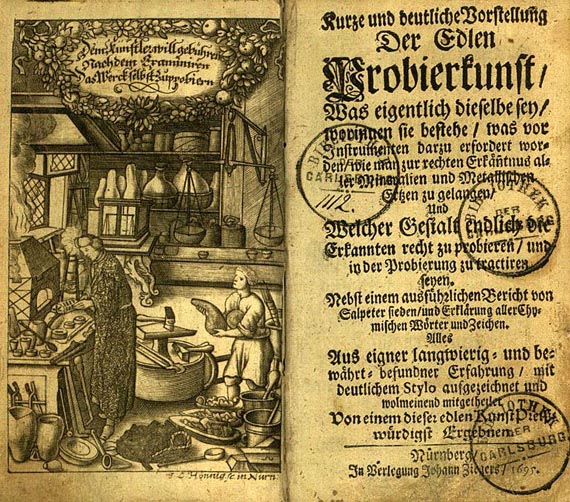 Dem Künstler will gebühren
Nach dem Examiniren
Das Werck selbst zu probiern
in Nurn
Kurze und deutliche Vorstellung
Der Edlen
Probierkunst/
Was eigentlich dieselbe sey/
worinnen sie bestehe/ was vor
Instrumenten darzu erfordert wor-
den/ wie man zur rechten Erkäntnus al-
ler Mineralien und Metallischen
Ertzen zu gelangen/
Und
Welcher Gestalt endlich die
Erkannten recht zu probieren/ und
in der Probierung zu tractiren
seyen.
Nebst einem ausführlichen Bericht von
Salpeter sieden/ und Erklärung aller Chy-
mischen Wörter und Zeichen.
Alles
Aus eigner langwierig- und be-
währt-befundner Erfahrung/ mit
deutlichem Stylo aufgezeichnet und
wolmeinend mitgetheilet
Von einem dieser edlen Kunst Preiß-
würdigst Ergebnen.
Nürnberg/
In Verlegung Johann Ziegers/ 1695.
CARLSB
1112.
BIBLIOTHEK
DER
BIBLIOTHEK
DER
CARLSBURG